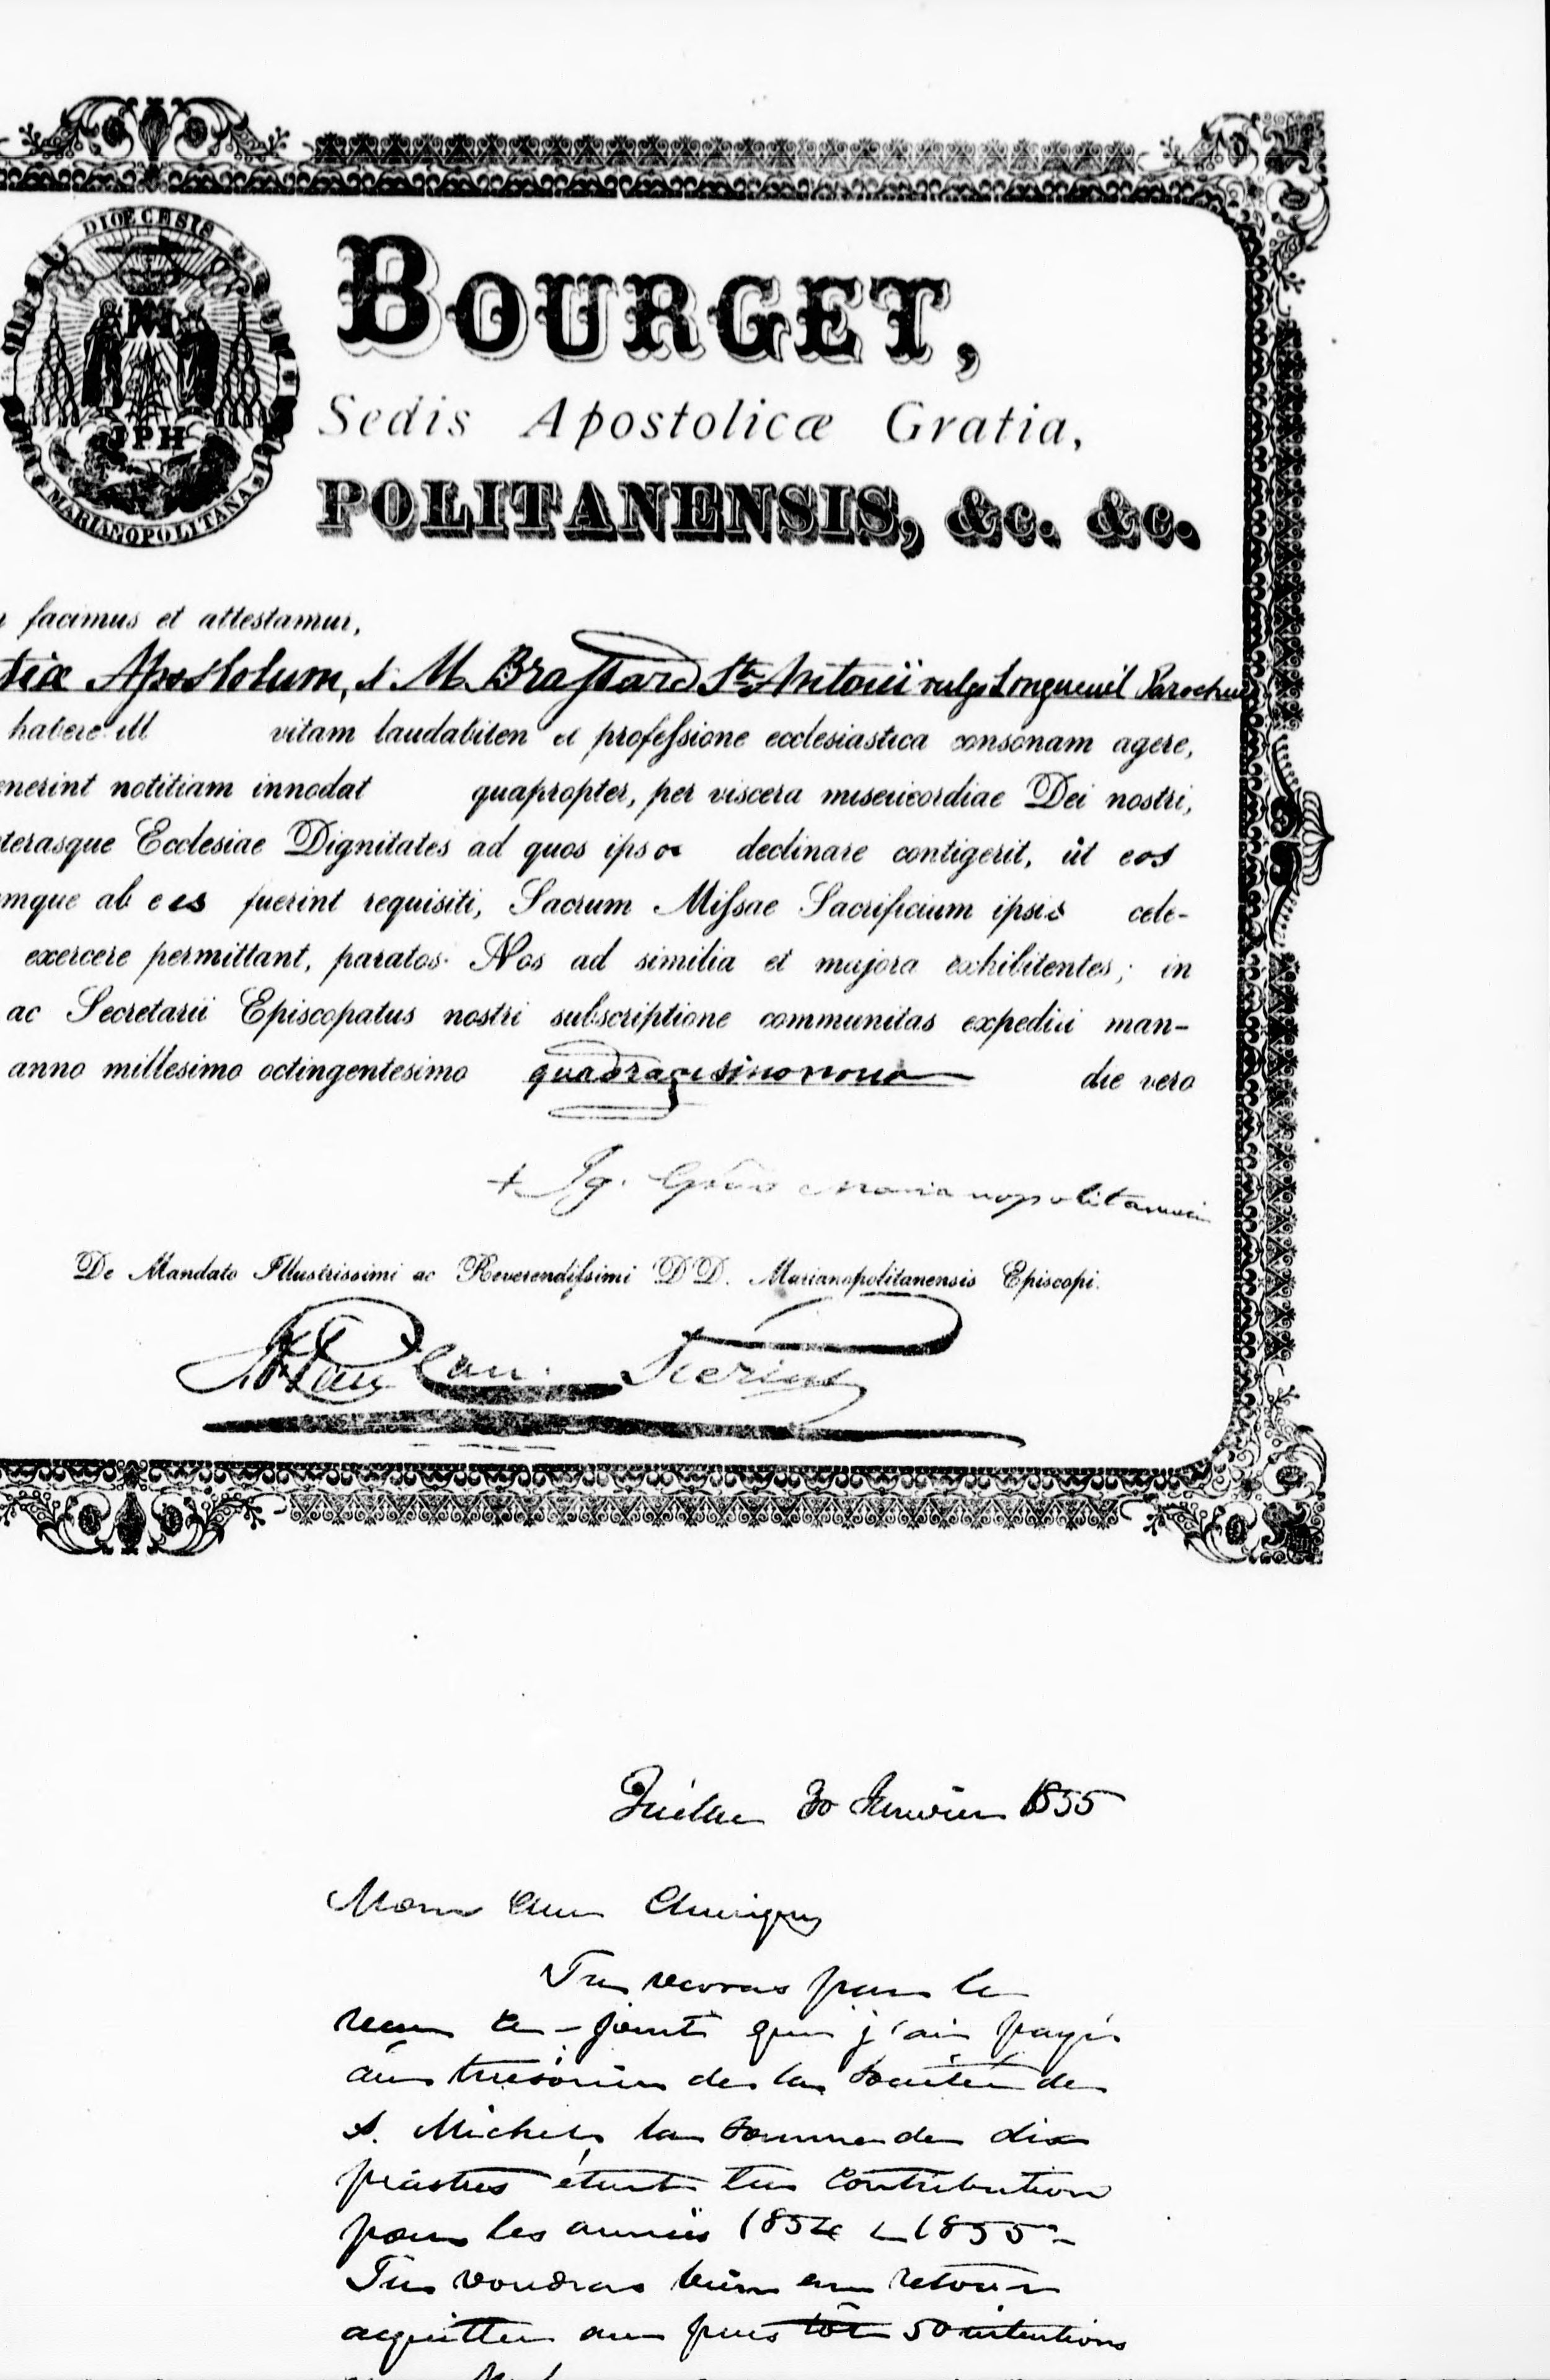 DIOECESIS
MARIANOPOLITANA
BOURGET,
Sedis Apostolicæ Gratia,
POLITANENSIS, &c. &c.
facimus et attestamur,
tiæ Apostolum, & M. Brassard Sti Antonii vulgo Longueuil Parochum
habere ill vitam laudabilem et professione ecclesiastica consonam agere,
enerint notitiam innodat quapropter, per viscera misericordiae Dei nostri,
terasque Ecclesiae Dignitates ad quos ipsos declinare contigerit, ut eos
mque ab eis fuerint requisiti, Sacrum Missae Sacrificium ipsis cele-
exercere permittant, paratos Nos ad similia et majora exhibitentes; in
ac Secretarii Episcopatus nostri subscriptione communitas expediri man-
anno millesimo octingentesimo quadragesimo nono die vero
+ Ig. Marianopolitanensis
De Mandato Illustrissimi ac Reverendissimi DD. Marianopolitanensis Episcopi.
Can. Secrius
Québec 30 Janvier 1855
Mon cher Chiniquy
Tu verras par le
recu ci-joint que j'ai payé
au trésorier de la Société de
S. Michel la somme de dix
piastres étant ta contribution
pour les années 1854 & 1855
Tu voudras bien en retour
acquitter au plus tôt 50 intentions